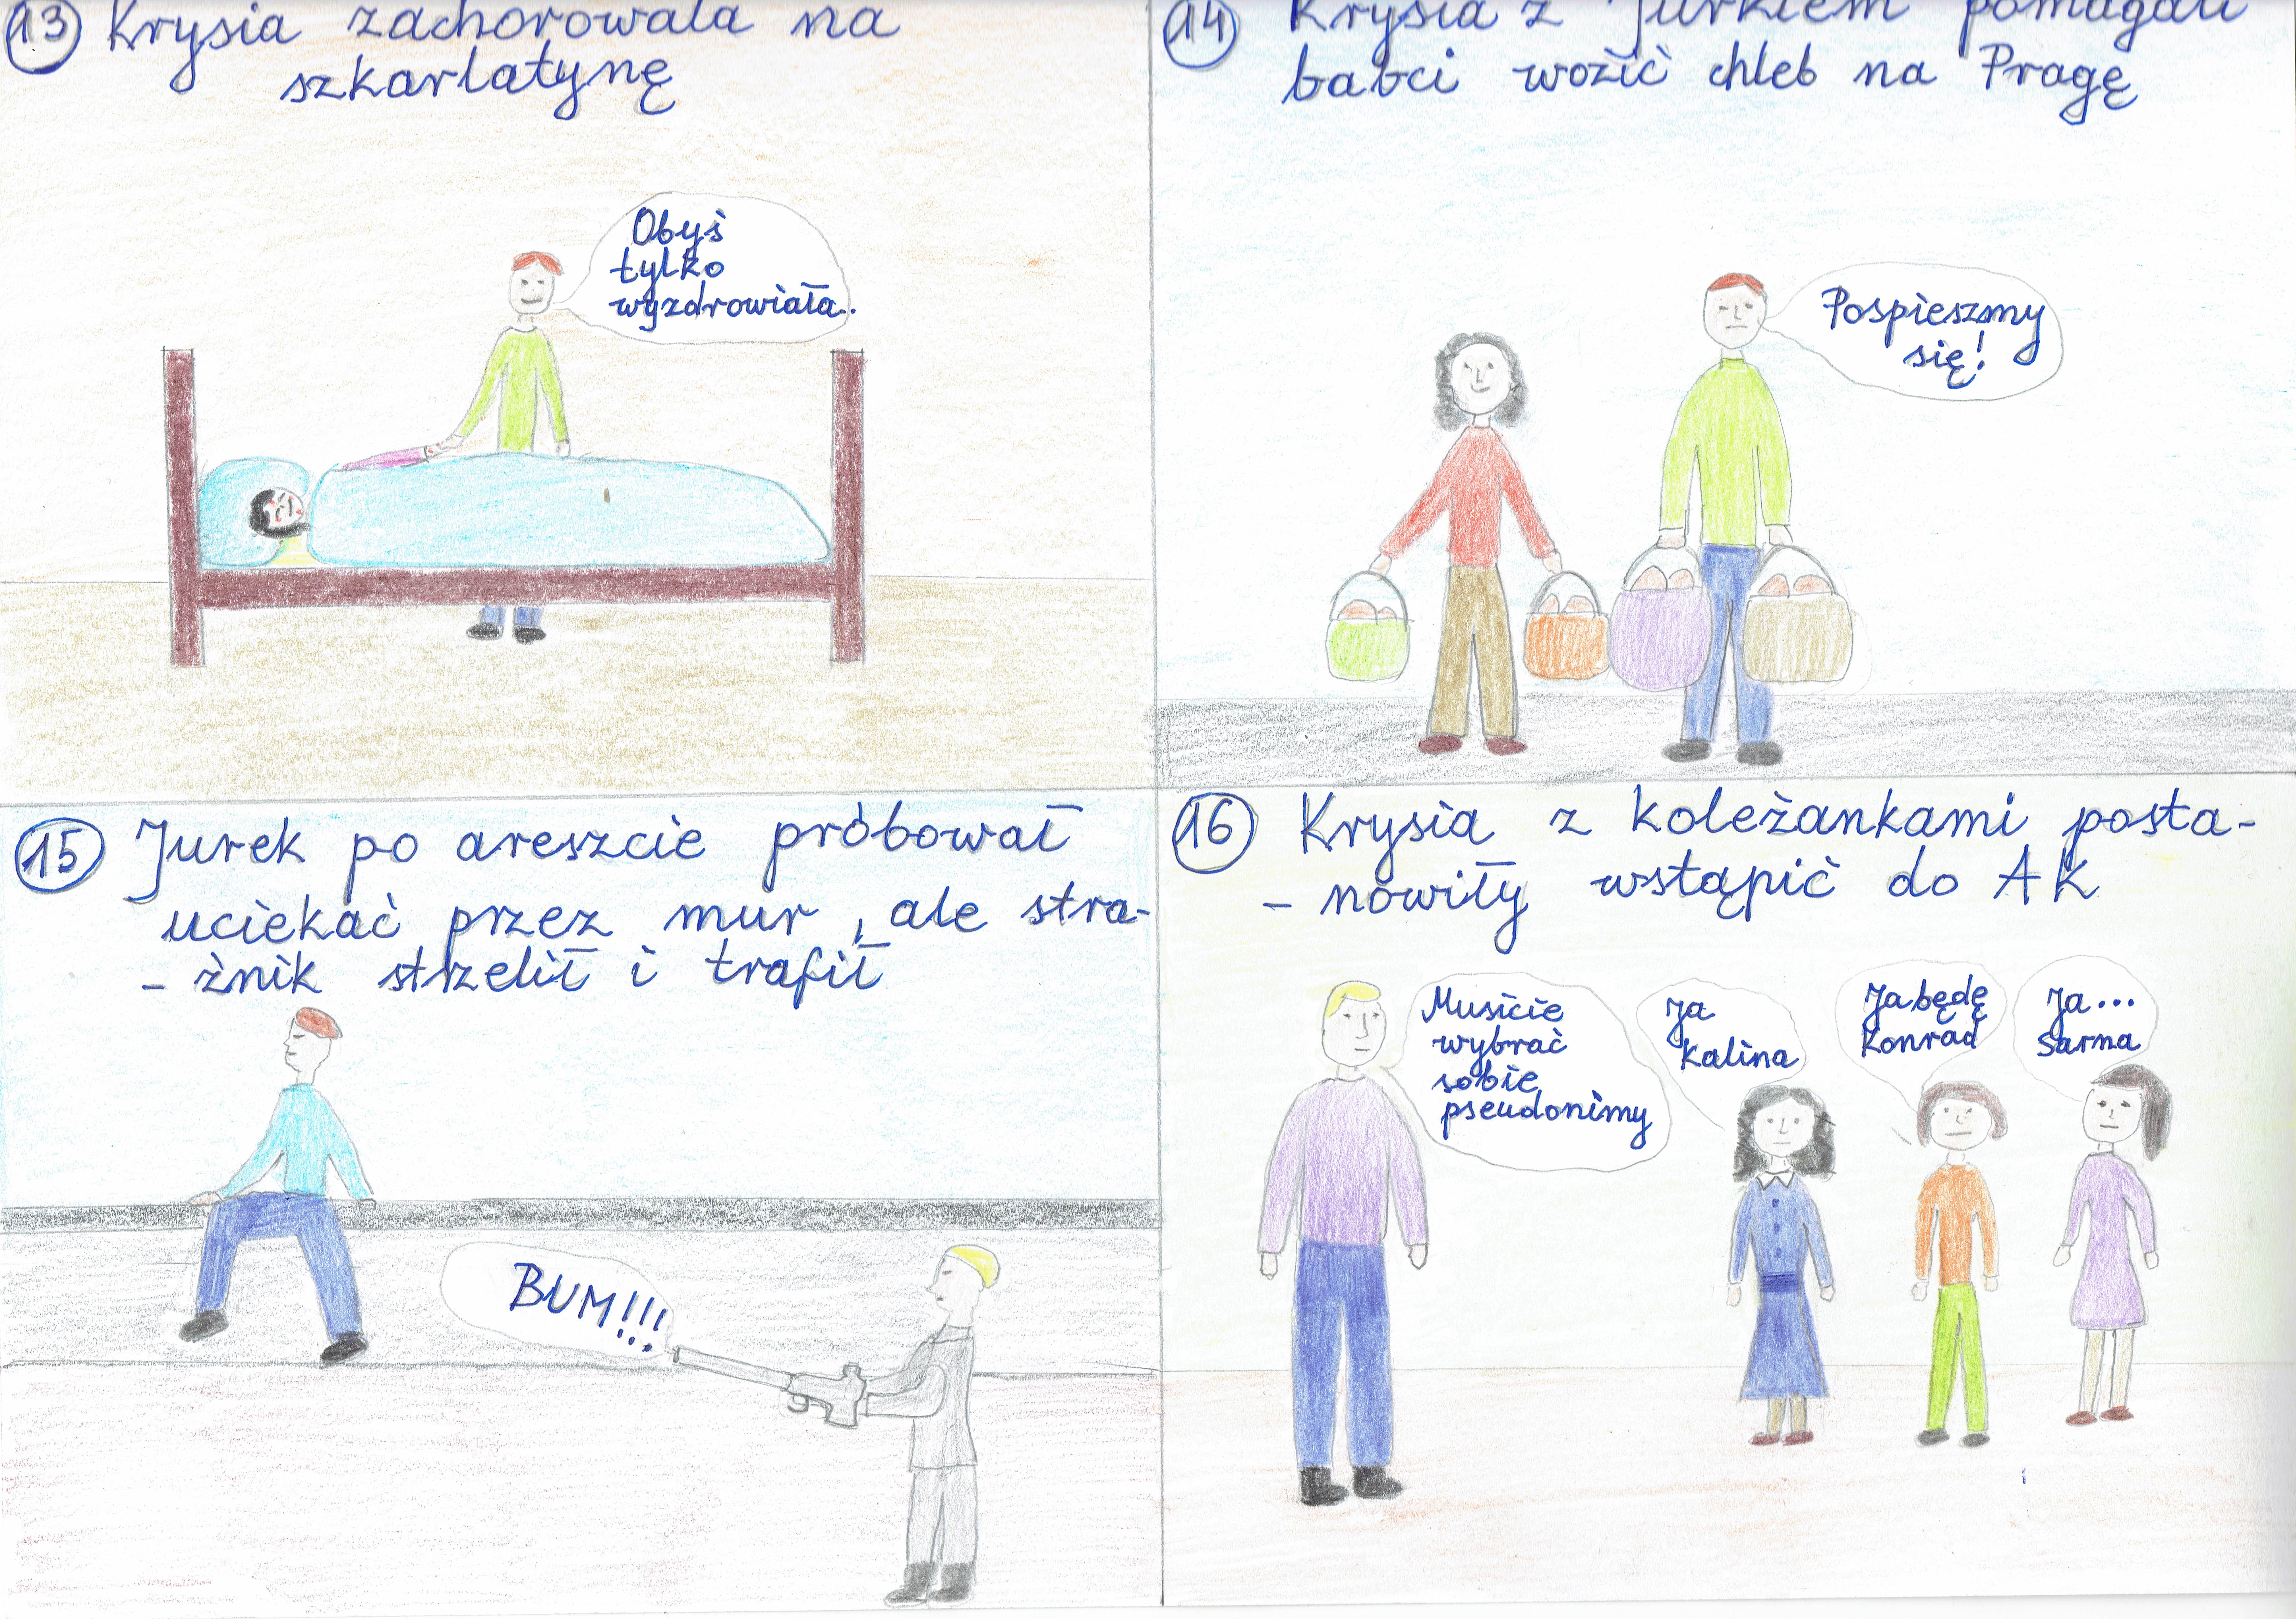 13 Krysia zachorowała na
szkarlatynę
Obyś
tylko
wyzdrowiała..
14 Krysia z Jurkiem pomagali
babci wozić chleb na Pragę
Pospieszmy
się!
15 Jurek po areszcie próbował
uciekać przez mur, ale stra-
- żnik strzelił i trafił
BUM!!!
16 Krysia z koleżankami posta-
- nowiły wstąpić do AK
Musicie
wybrać
sobie
pseudonimy
Ja
Kalina
Ja będę
Konrad
Ja...
Sarna